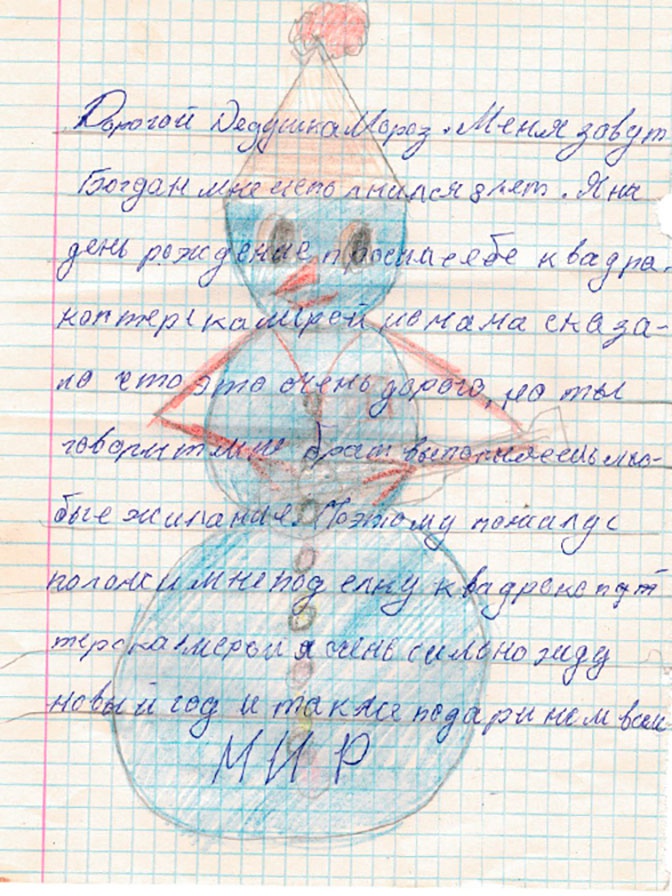 Дорогой Дедушка Мороз. Меня завут
Богдан мне исполнился 8 лет. Я на
день рождение просил себе квадра-
коптер с камерой но мама сказа-
ла что это очень дорого, но ты
говорит мне брат выполняешь лю-
бые жилания. Поэтому пожалус
положи мне под елку квадрокопт
тер с камерой я очень сильно жду
новый год и также подари нам всем
МИР